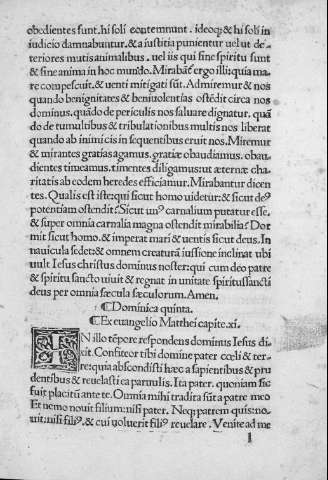 obedientes sunt. hi soli contemnunt. ideoq; & hi soli in
iudicio damnabuntur. & a iustitia punientur uel ut de-
teriores mutis animalibus. uel iis qui sine spiritu sunt
& sine anima in hoc mundo. Mirabāt̄ ergo illi: quia ma-
re compescuit. & uenti mitigati sūt. Admiremur & nos
quando benignitates & beniuolentias ostēdit circa nos
dominus. quādo de periculis nos saluare dignatur. quā
do de tumultibus & tribulationibus multis nos liberat
quando ab inimicis in sequentibus eruit nos. Miremur
& mirantes gratias agamus. gratiæ obaudiamus. obau-
dientes timeamus. timentes diligamus: ut æternæ cha-
ritatis ab eodem heredes efficiamur. Mirabantur dicen
tes. Qualis est iste: qui sicut homo uidetur: & sicut deꝰ
potentiam ostendit? Sicut unꝰ carnalium putatur esse,
& super omnia carnalia magna ostendit mirabilia? Dor
mit sicut homo. & imperat mari & uentis sicut deus. In
nauicula sedet: & omnem creaturā iussione inclinat tibi
uult Iesus christus dominus noster: qui cum deo patre
& spiritu sancto uiuit & regnat in unitate spiritussancti
deus per omnia sæcula sæculorum. Amen.
¶ Dominica quinta.
¶ Ex euangelio Matthei capite. xi.
IN illo tēpore respondens dominus Iesus di
xit. Confiteor tibi domine pater cœli & ter-
re: quia abscondisti hæc a sapientibus & pru
dentibus & reuelasti ea paruulis. Ita pater. quoniam sic
fuit placitū ante te. Omnia mihi tradita sūt a patre meo
Et nemo nouit filium: nisi pater. Neq; patrem quis: no-
uit: nisi filiꝰ. & cui uoluerit filiꝰ reuelare. Venite ad me
l